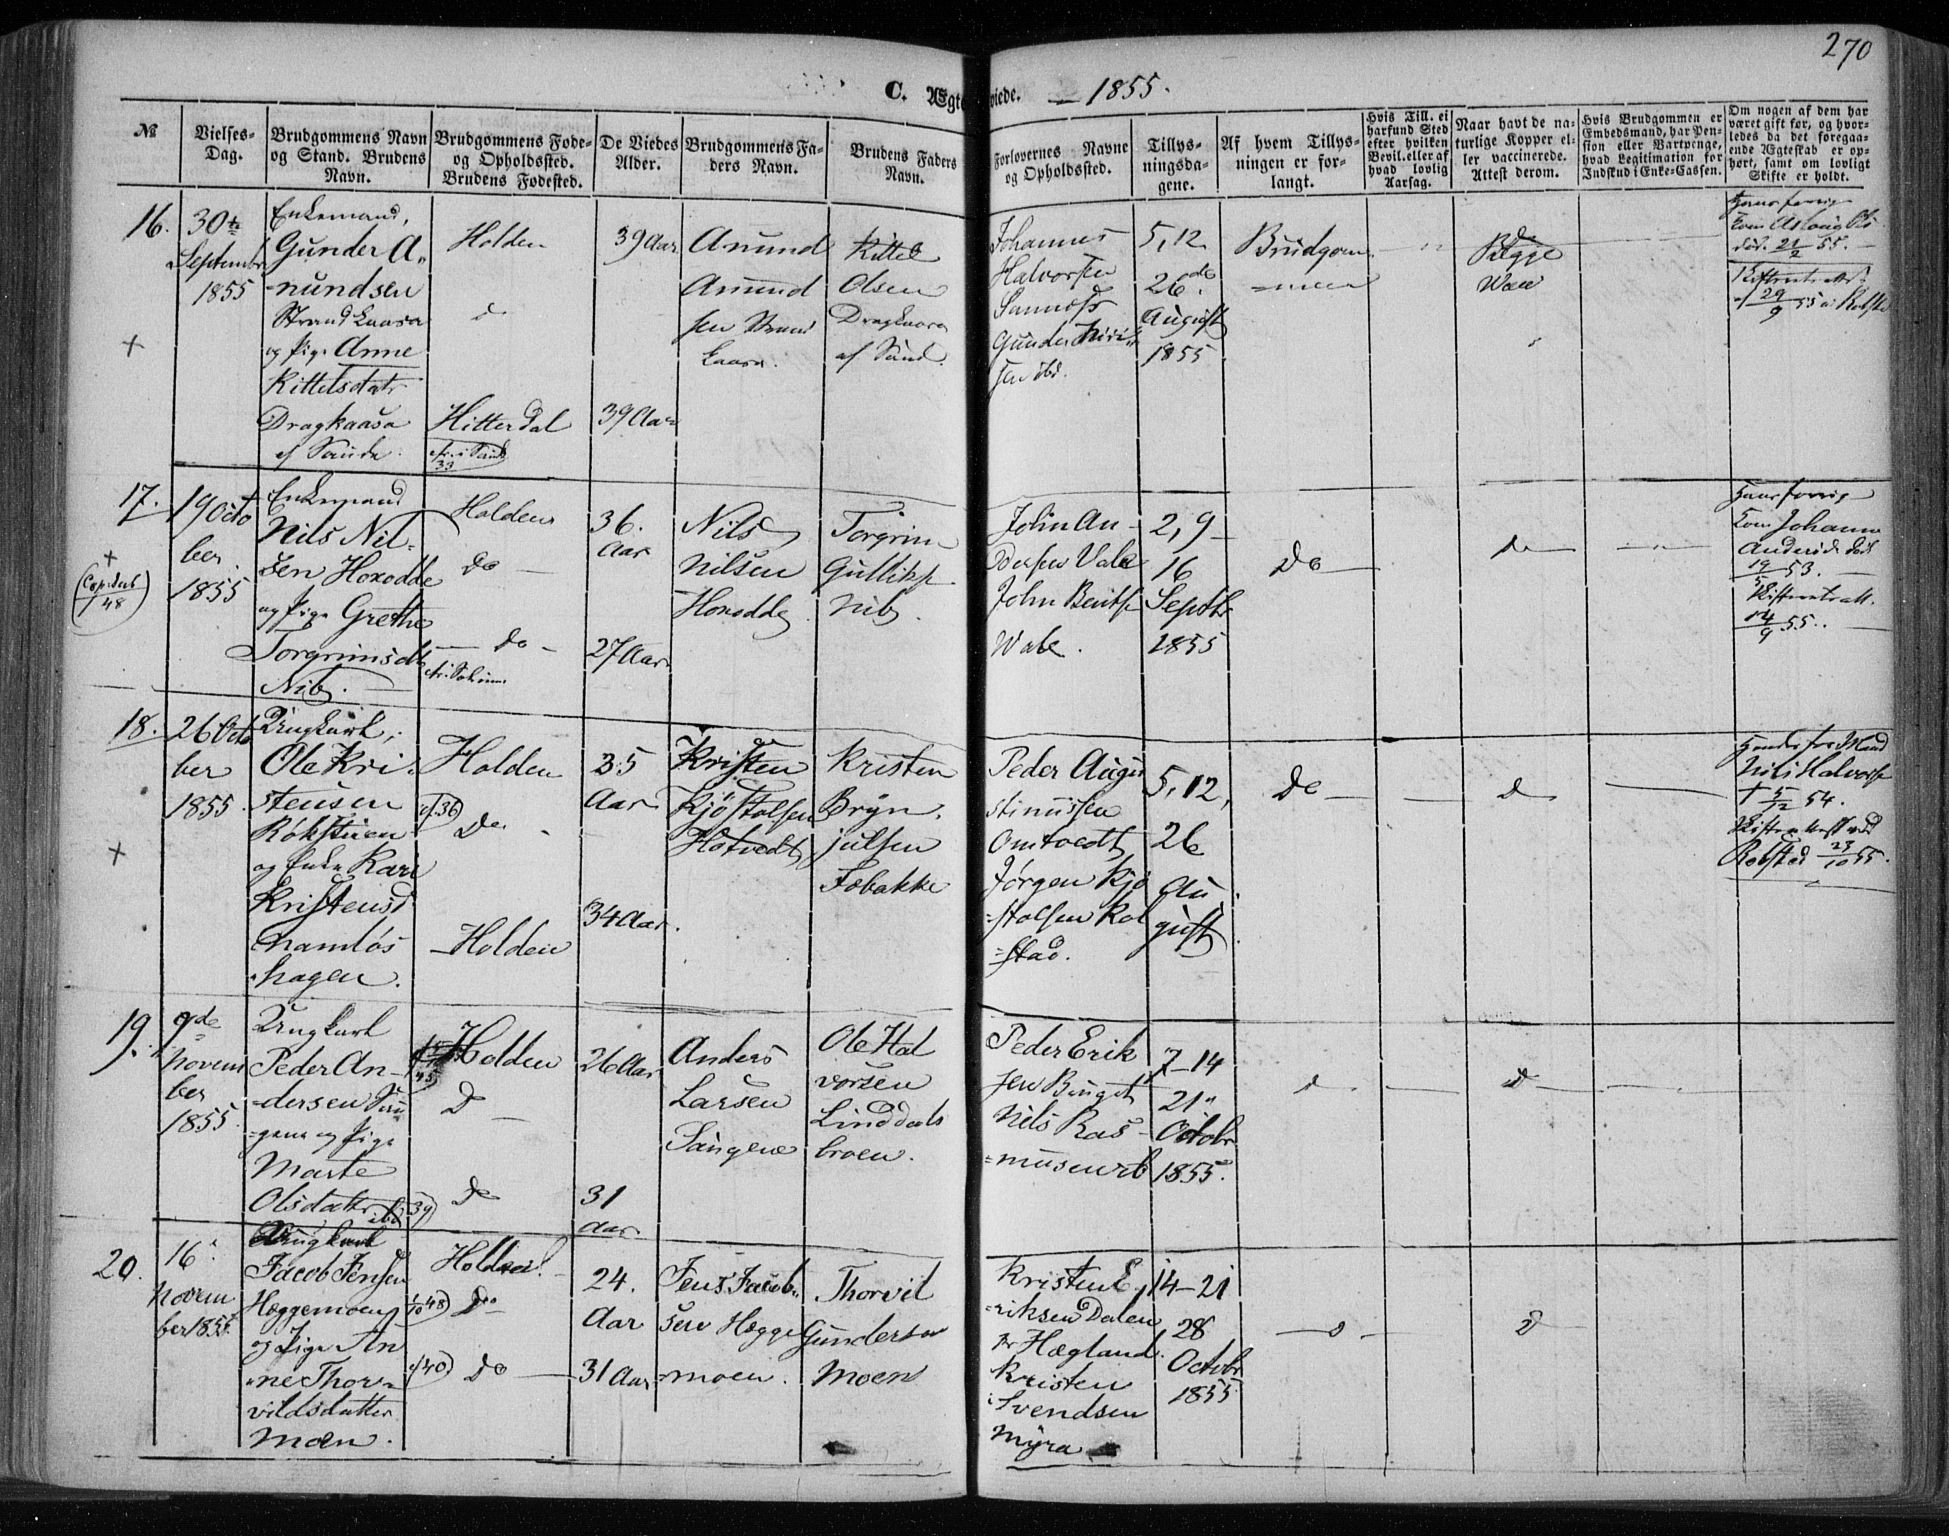 270
C. Ægteviede. — 1855.
№
Vielses-Dag.
Brudgommens Navn og Stand. Brudens Navn.
Brudgommens Føde- og Opholdssted. Brudens Fødested.
De Viedes Alder.
Brudgommens Faders Navn.
Brudens Faders Navn.
Forlovernes Navne og Opholdssted.
Tillysningsdagene.
Af hvem Tillysningen er forlangt.
Hvis Till. ei harfund Sted efter hvilken Bevil. eller af hvad lovlig Aarsag.
Naar havt de naturlige Kopper eller vaccinerede. Attest derom.
Hvis Brudgommen er Embedsmand, har Pension eller Vartpenge, hvad Legitimation for Indskud i Enke-Cassen.
Om nogen af dem har været gift før, og hvorledes da det foregaaende Ægteskab er ophørt, samt om lovligt Skifte er holdt.
16.
30te
September
1855
Enkemand,
Gunder A-
nundsen
Strandkaasa
og Pige Anne
Kittelsdatr
Dragkaasa
af Saude.
Holden
d
Hitterdal
39 Aar
39 Aar
Anund
Anund
sen Strand
kaasa.
Kittel
Olsen
Dragkaasa
af Saude.
Johannes
Halvorsen
Gunder
5, 12
26de
August
1855
Brudgom-
men
Begge
Vac
17.
19 Octo
ber
1855
Enkemand
Nils Nil-
sen Hoxodde
og Pige Grethe
Torgrimsdtr
Holden
Do
do
36.
Aar
27 Aar
Nils
Nilsen
Torgrim
Gulliks.
John An-
dersen Vala
John Bentsen
Wale.
2, 9
16
Septbr
1855
Do
do
Hans forrige
Kone Johanne
Andersd. død
19/5 53.
14/9 55.
18.
26 Octo
ber
1855.
Ungkarl,
Ole Kri-
stensen
Rökstuen
og Enke Kari
Kristensd
Namløs
hagen.
Holden
Do.
Holden
35
Aar
34 Aar.
Kristen
Kjøstolsen
Hotvedt
Kristen
Bryn-
julsen
Fobakke
Peder Augu
stinussen
Omtvedt
Jörgen Kjö
stolsen Rol
stad.
5, 12,
26
Au
gust
Do
d
Nils Halvors.
† 5/12 54.
Rolstad 23/10 55.
19.
9de
Novem
ber
1855.
Ungkarl
Peder An-
dersen Sau-
gene og Pige
Marte
Olsdatter ibd
Holden
D
Do
26 Aar
31
Aar
Anders
Larsen
Saugene
Ole Hal
vorsen
Linddals
broen.
Peder Erik
sen
Nils Ras-
musen ib
7-14
21"
Octobr
1855.
d
d
20.
16
Novem
ber 1855.
Ungkarl
Jacob Jensen
Hæggemoen
og Pige An
ne Thor-
vildsdatter
Moen.
Holden.
Do
Do
24.
Aar
31 Aar
Jens Jacob-
sen Hægge
moen.
Thorvil
Gunderson
Moen
Kristen E-
riksen Dalen
pr Hægland.
Kristen
Svendsen
Myra
14-21
28
Octobr
1855
d
d